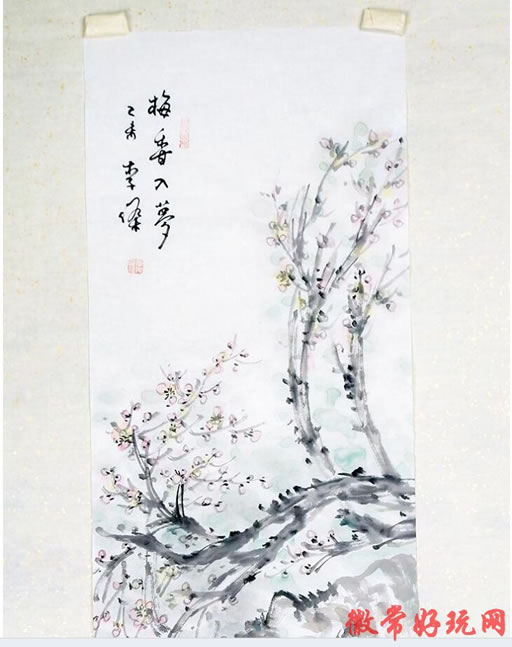 梅香入夢
乙未 李傑
徽常好玩网